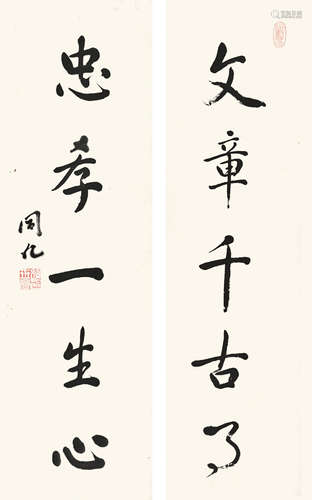 文章千古事
忠孝一生心